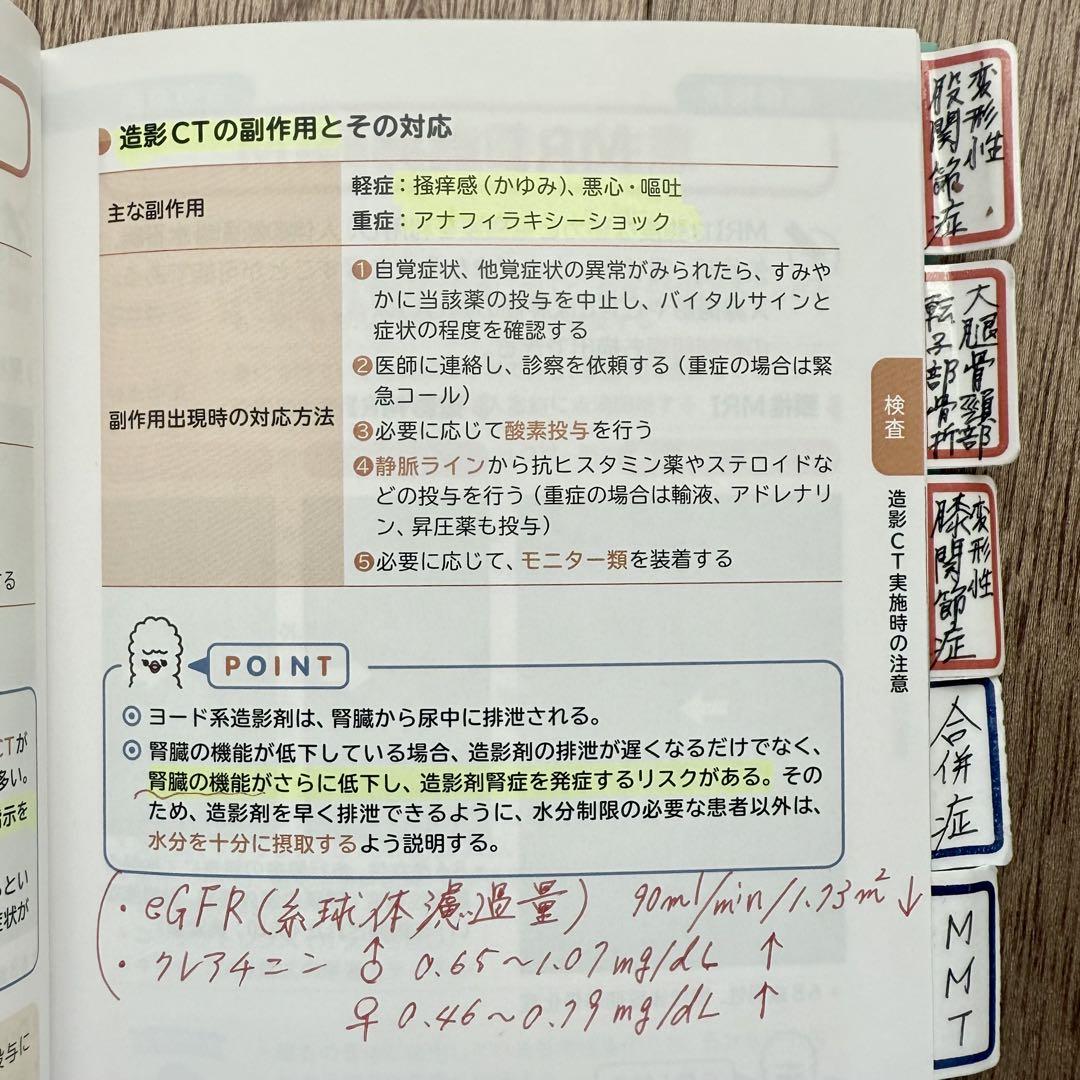 造影CTの副作用とその対応
主な副作用
軽症：掻痒感（かゆみ）、悪心・嘔吐
重症：アナフィラキシーショック
副作用出現時の対応方法
❶自覚症状、他覚症状の異常がみられたら、すみや
かに当該薬の投与を中止し、バイタルサインと
症状の程度を確認する
❷医師に連絡し、診察を依頼する（重症の場合は緊
急コール）
❸必要に応じて酸素投与を行う
❹静脈ラインから抗ヒスタミン薬やステロイドな
どの投与を行う（重症の場合は輸液、アドレナリ
ン、昇圧薬も投与）
❺必要に応じて、モニター類を装着する
POINT
ヨード系造影剤は、腎臓から尿中に排泄される。
腎臓の機能が低下している場合、造影剤の排泄が遅くなるだけでなく、
腎臓の機能がさらに低下し、造影剤腎症を発症するリスクがある。その
ため、造影剤を早く排泄できるように、水分制限の必要な患者以外は、
水分を十分に摂取するよう説明する。
・eGFR（糸球体濾過量） 90ml/min/1.73m²↓
・クレアチニン ♂ 0.65〜1.07mg/dL ↑
♀ 0.46〜0.79mg/dL ↑
検査
造影CT実施時の注意
変形性
股関節症
大腿骨頸部
転子部骨折
変形性
膝関節症
合併症
MMT
する
CTが
多い。
指示を
とい
症状が
投与に